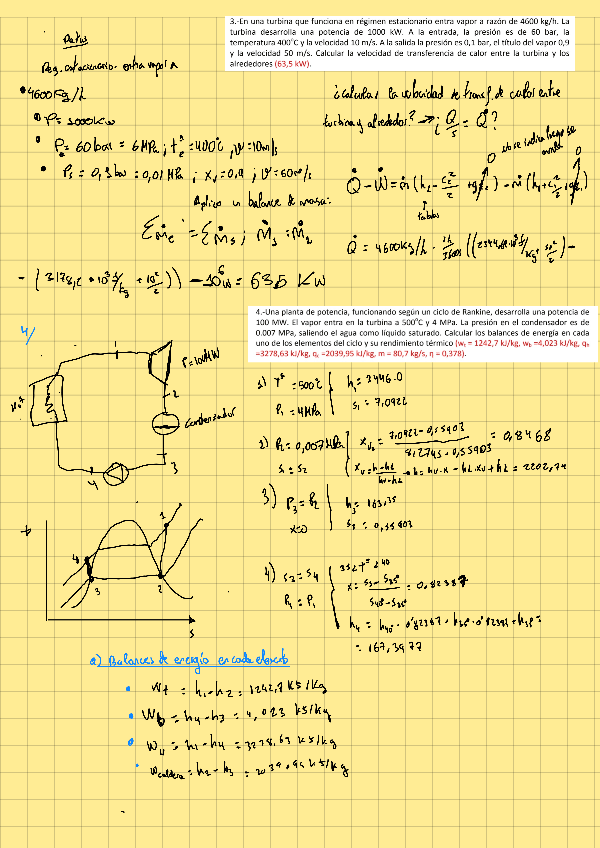 3.-En una turbina que funciona en régimen estacionario entra vapor a razón de 4600 kg/h. La
turbina desarrolla una potencia de 1000 kW. A la entrada, la presión es de 60 bar, la
temperatura 400°C y la velocidad 10 m/s. A la salida la presión es 0,1 bar, el título del vapor 0,9
y la velocidad 50 m/s. Calcular la velocidad de transferencia de calor entre la turbina y los
alrededores (63,5 kW).
Datos
Reg. estacionario. entra vapor A
4600 kg/h
P = 1000 kW
Pe = 60 bar = 6 MPa ; te = 400°C , v = 10 m/s
Ps = 0,1 bar = 0,01 MPa ; xv = 0,9 ; v = 50 m/s
Aplico un balance de masa:
Σṁe = Σṁs ; ṁ1 = ṁ2
¿calcular la velocidad de transf. de calor entre
turbina y alrededor? → ¿ Q/s = Q̇ ?
Tablas
Q̇ = 4600 kg/h · 1h/3600s
- (3178,2 · 10³ J/kg + 10²/2)) - 10⁶ w = 63,5 KW
4.-Una planta de potencia, funcionando según un ciclo de Rankine, desarrolla una potencia de
100 MW. El vapor entra en la turbina a 500°C y 4 MPa. La presión en el condensador es de
0.007 MPa, saliendo el agua como líquido saturado. Calcular los balances de energía en cada
uno de los elementos del ciclo y su rendimiento térmico (wt = 1242,7 kJ/kg, wb =4,023 kJ/kg, qh
=3278,63 kJ/kg, qL =2039,95 kJ/kg, m = 80,7 kg/s, η = 0,378).
4/
P = 100 MW
1
2
Condensador
3
4
1) Tª = 500°C
P1 = 4 MPa
h1 = 3446.0
s1 = 7,0922
2) P2 = 0,007 MPa
s1 = s2
= 0,8468
= 2202,74
3) P3 = P2
x=0
h3 = 163,35
4) s3 = s4
P4 = P1
= 0,82387
= 167,3977
1
4
3
2
s
a) Balances de energía en cada elemento
Wt = h1 - h2 = 1242,7 KJ/Kg
Wb = h4 - h3 = 4,023 KJ/Kg
= h1 - h4 = 3278,63 KJ/Kg
Wcaldera = h2 - h3 = 2039.95 KJ/Kg